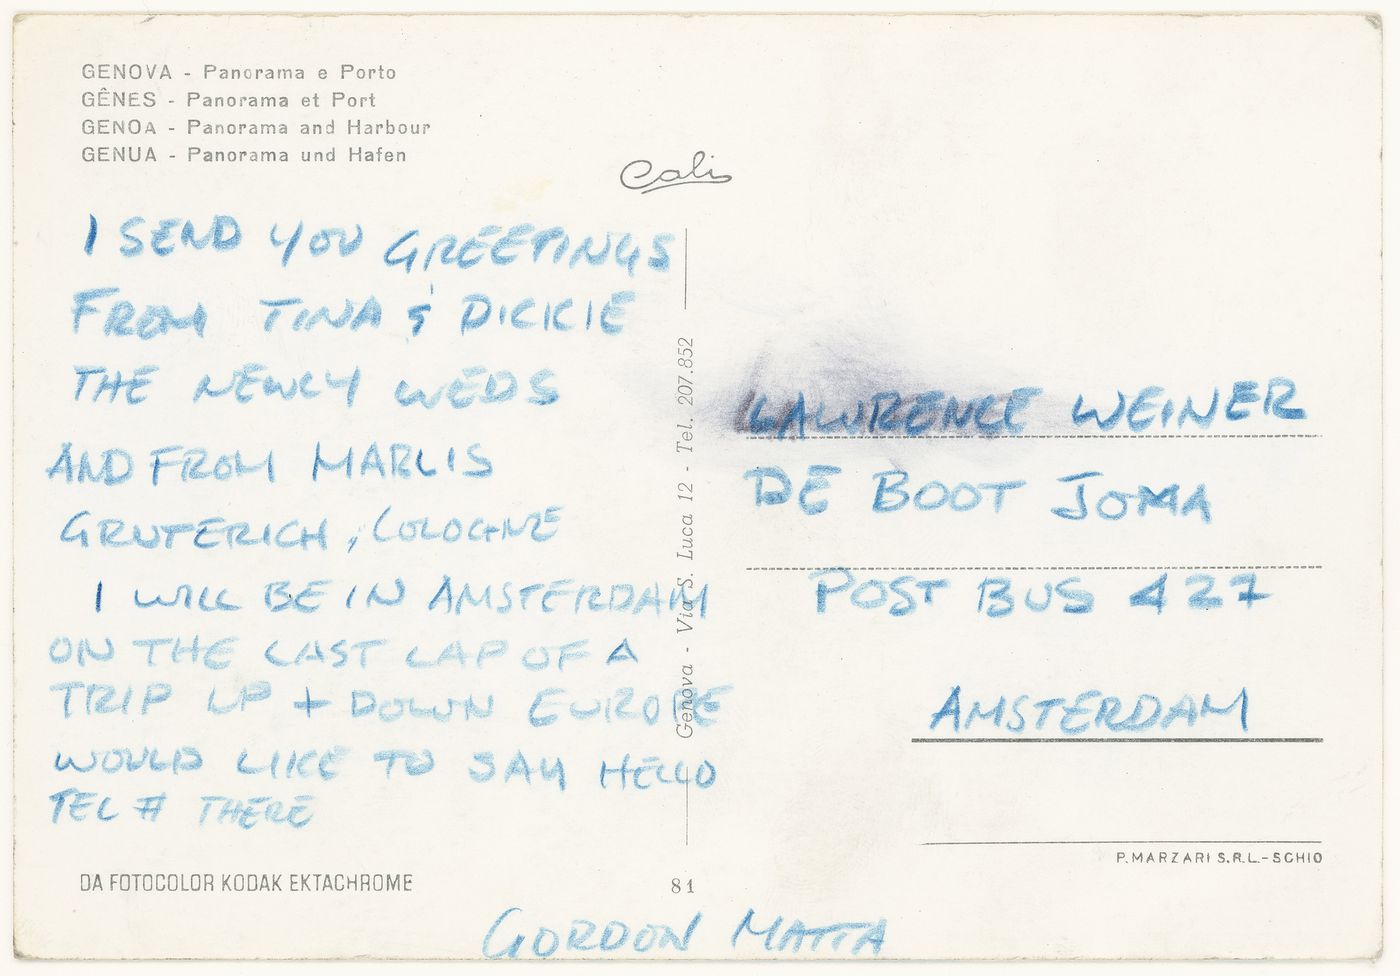 GENOVA - Panorama e Porto
GÊNES - Panorama et Port
GENOA - Panorama and Harbour
GENUA - Panorama und Hafen
Cali
I SEND YOU GREETINGS
FROM TINA & DICKIE
THE NEWLY WEDS
AND FROM MARLIS
GRUTERICH, COLOGNE
I WILL BE IN AMSTERDAM
ON THE LAST LAP OF A
TRIP UP + DOWN EUROPE
WOULD LIKE TO SAY HELLO
TEL # THERE
Genova - Via S. Luca 12 - Tel. 207.852
LAWRENCE WEINER
DE BOOT JOMA
POST BUS 427
AMSTERDAM
P. MARZARI S.R.L.-SCHIO
DA FOTOCOLOR KODAK EKTACHROME
81
GORDON MATTA